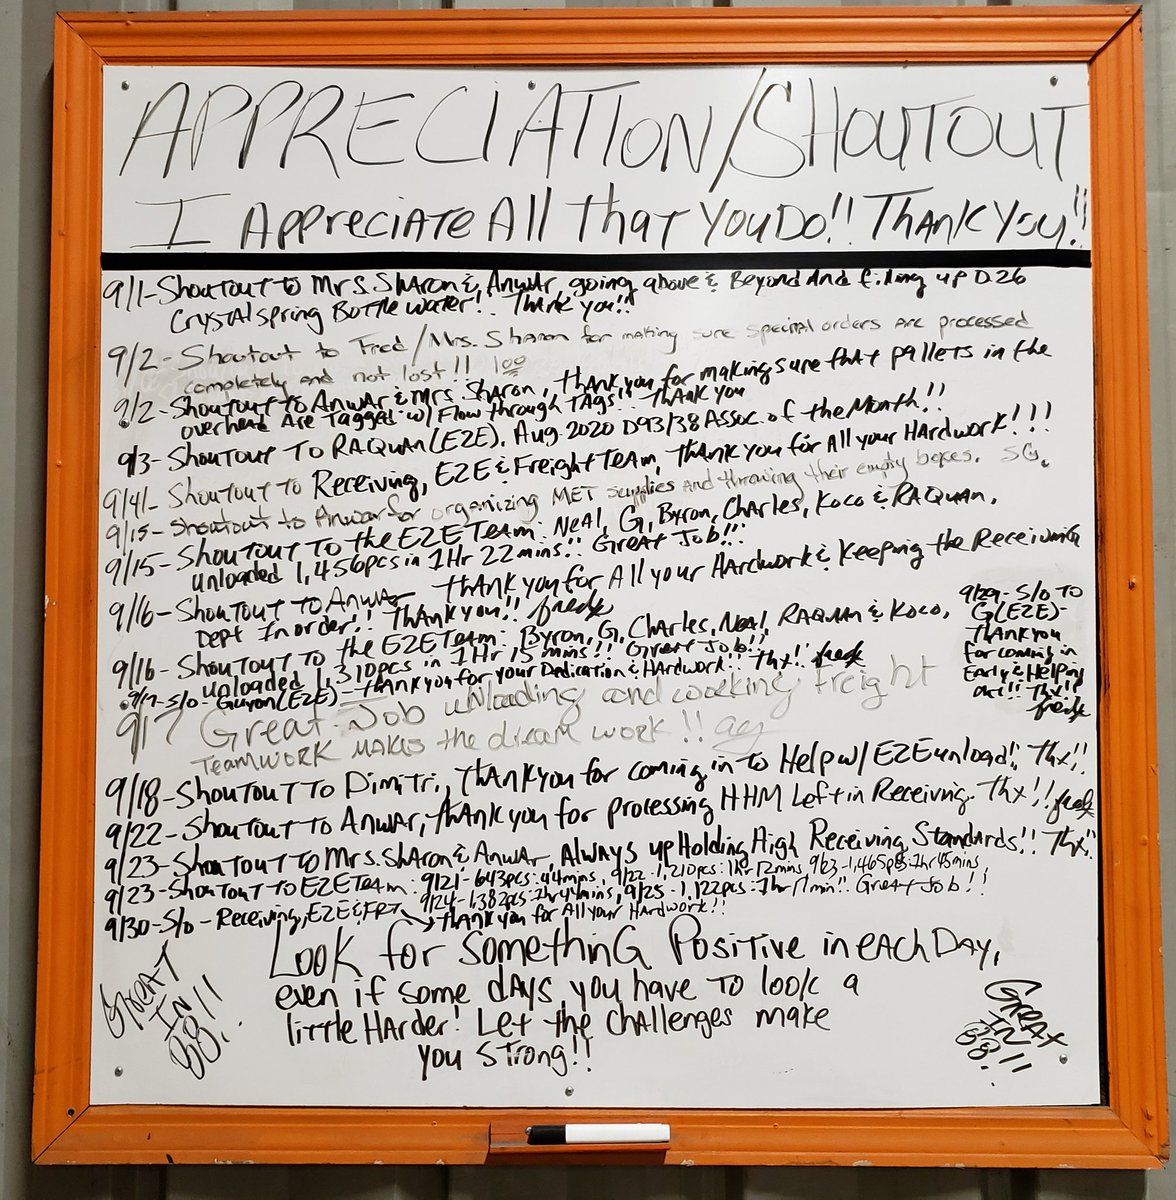 APPRECIATION/SHOUTOUT
I Appreciate All That You Do!! Thank You!!
9/1-Shoutout to Mrs. Sharon & Anwar, going above & Beyond And filling up D.26
Crystal spring Bottle Water!! Thank you!!
9/2- Shoutout to Fred/Mrs. Sharon for making sure special orders are processed
completely and not lost!! 100
9/2-Shoutout to Anwar & Mrs. Sharon, thank you for making sure that pallets in the
overhead Are Tagged w/ Flow through TAgs!! Thank You
9/3- Shoutout To RAQuan (E2E). Aug. 2020 D93/38 Assoc. of the Month!!
9/4- Shoutout to Receiving, E2E & Freight Team, Thank you for All your Hardwork!!!
9/15- Shoutout to Anwar for organizing MET supplies and throwing their empty boxes. SG.
9/15-Shoutout To the E2E Team: Neal, G, Byron, Charles, Koco & RAQuan.
unloaded 1,456pcs in 1Hr 22mins!! Great Job!!!
9/16- Shoutout to Anwar Thank you for All your Hardwork & Keeping the Receiving
Dept In order!! Thank you!!
9/16- Shoutout To the E2E Team: Byron, G, Charles, Neal, RAQuan & Koco,
unloaded 1,310pcs in 1Hr 15mins!! Great Job!!
9/17-S/o-Guyon (E2E)-Thank you for your Dedication & Hardwork!! Thx!!
9/17 Great Job unloading and working freight
Teamwork makes the dream work!!
9/29- S/o To
G(E2E)-
Thank you
for coming in
Early & Helping
out!! Thx!!
9/18-Shoutout To Dimitri, Thank you for coming in to Help w/ E2E unload!! Thx!!
9/22-Shoutout to Anwar, thank you for processing HHM Left in Receiving. Thx!!
9/23-Shoutout to Mrs. Sharon & Anwar, Always upHolding High Receiving Standards!! Thx!!
9/23-Shoutout to E2E Team: 9/21-643pcs:44mins, 9/22-1,210pcs:1hr 12mins, 9/23-1,465pcs:1hr 45mins
9/24-1,382pcs:1hr 44mins, 9/25-1,122pcs:1hr 17min!! Great Job!!
9/30-S/o-Receiving, E2E & FRT → Thank you for All your Hardwork!!
Look for something Positive in each Day,
even if some days you have to look a
little Harder! Let the challenges make
you strong!!
Great
In
38!!
Great
In
38!!